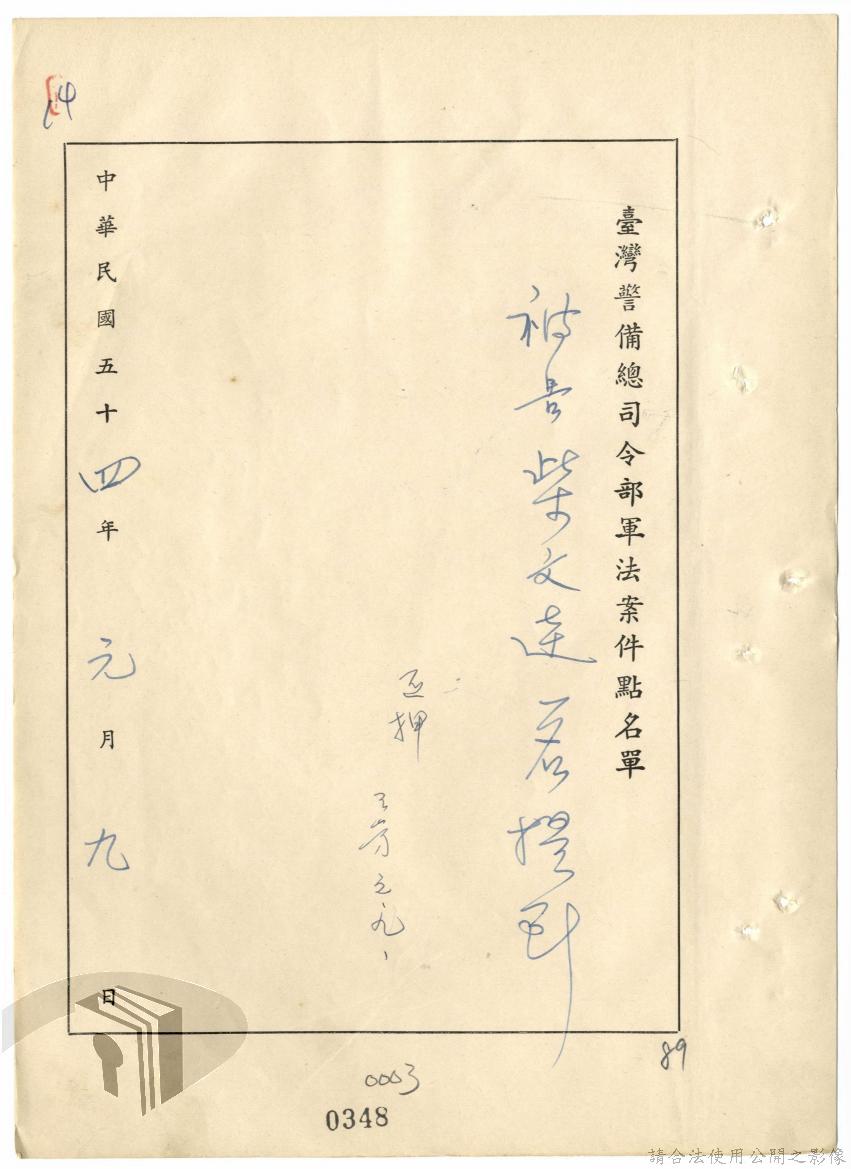 14
臺灣警備總司令部軍法案件點名單
被告柴文達一名提到
还押
中華民國五十四年元月九日
89
0003
0348
請合法使用公開之影像